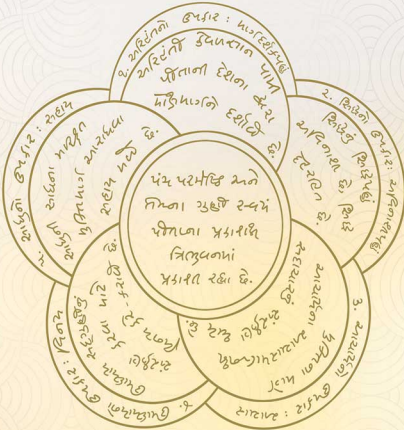 પંચ પરમેષ્ઠિ અને
તેમના ગુણો સ્વયં
પોતાના પ્રકાશથી
ત્રિભુવનમાં
પ્રકાશતા રહ્યા છે.
૧. અરિહંતનો ઉપકાર : માર્ગદર્શકપણું
અરિહંતો કેવળજ્ઞાન પામી
પોતાની દેશના દ્વારા
મોક્ષમાર્ગને
દર્શાવે છે.
૨. સિદ્ધનો ઉપકાર : અવિનાશીપણું
સિદ્ધોનું સિદ્ધપણું
અવિનાશી છે
૩. આચાર્યનો ઉપકાર : આચાર
આચાર્યના આચારપાલનથી
મુક્તિના માર્ગે
સદાચારનું
૪. ઉપાધ્યાયનો ઉપકાર : વિનય
ઉપાધ્યાય
વિનય કરે - કરાવે છે.
૫. સાધુનો ઉપકાર : સહાય
સાધુની સાધના
મુક્તિમાર્ગ આરાધવા
સહાય કરે છે.